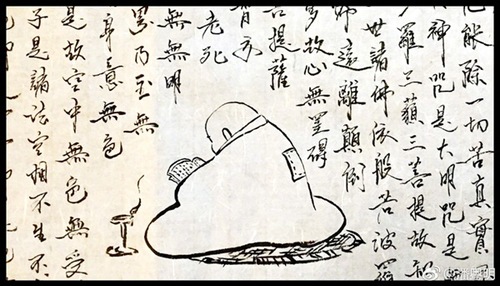 能除一切苦真實
神咒是大明咒是
多羅三藐三菩提故知
世諸佛依般若波羅
遠離顛倒
多故心無罣礙
菩提薩
亦
老死
無無明
界乃至無
身意無色
是故空中無色無受
子是諸法空相不生不